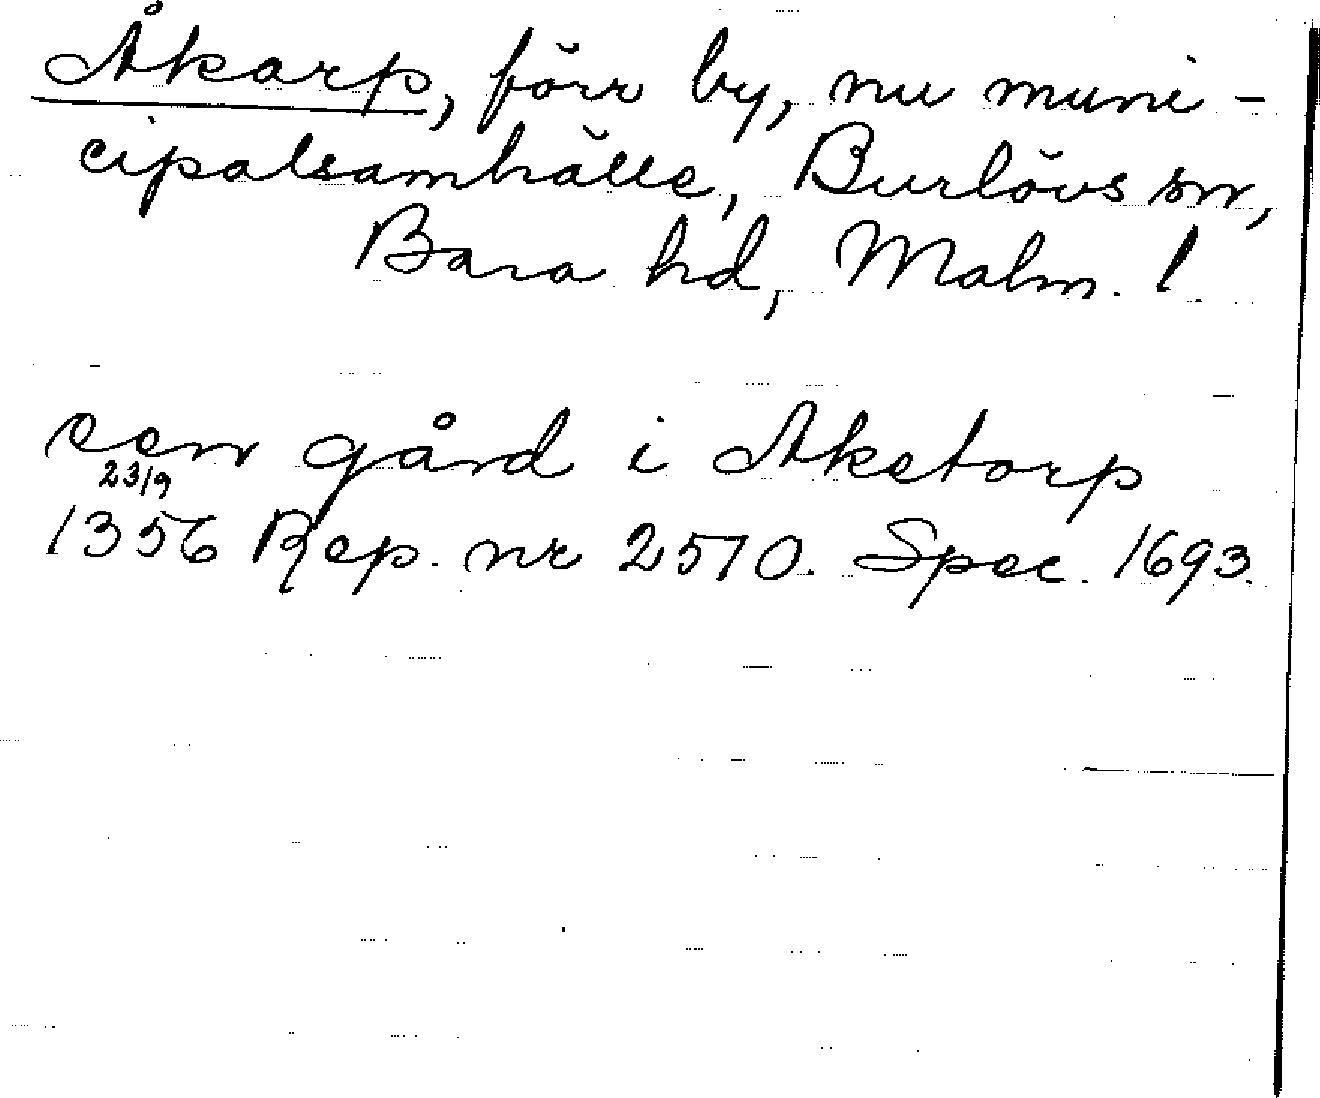 Åkarp, förr by, nu muni-
cipalsamhälle, Burlövs sn,
Bara hd, Malm. l.
een gård i Aketorp
23/9
1356 Rep. nr 2570. Spec. 1693.